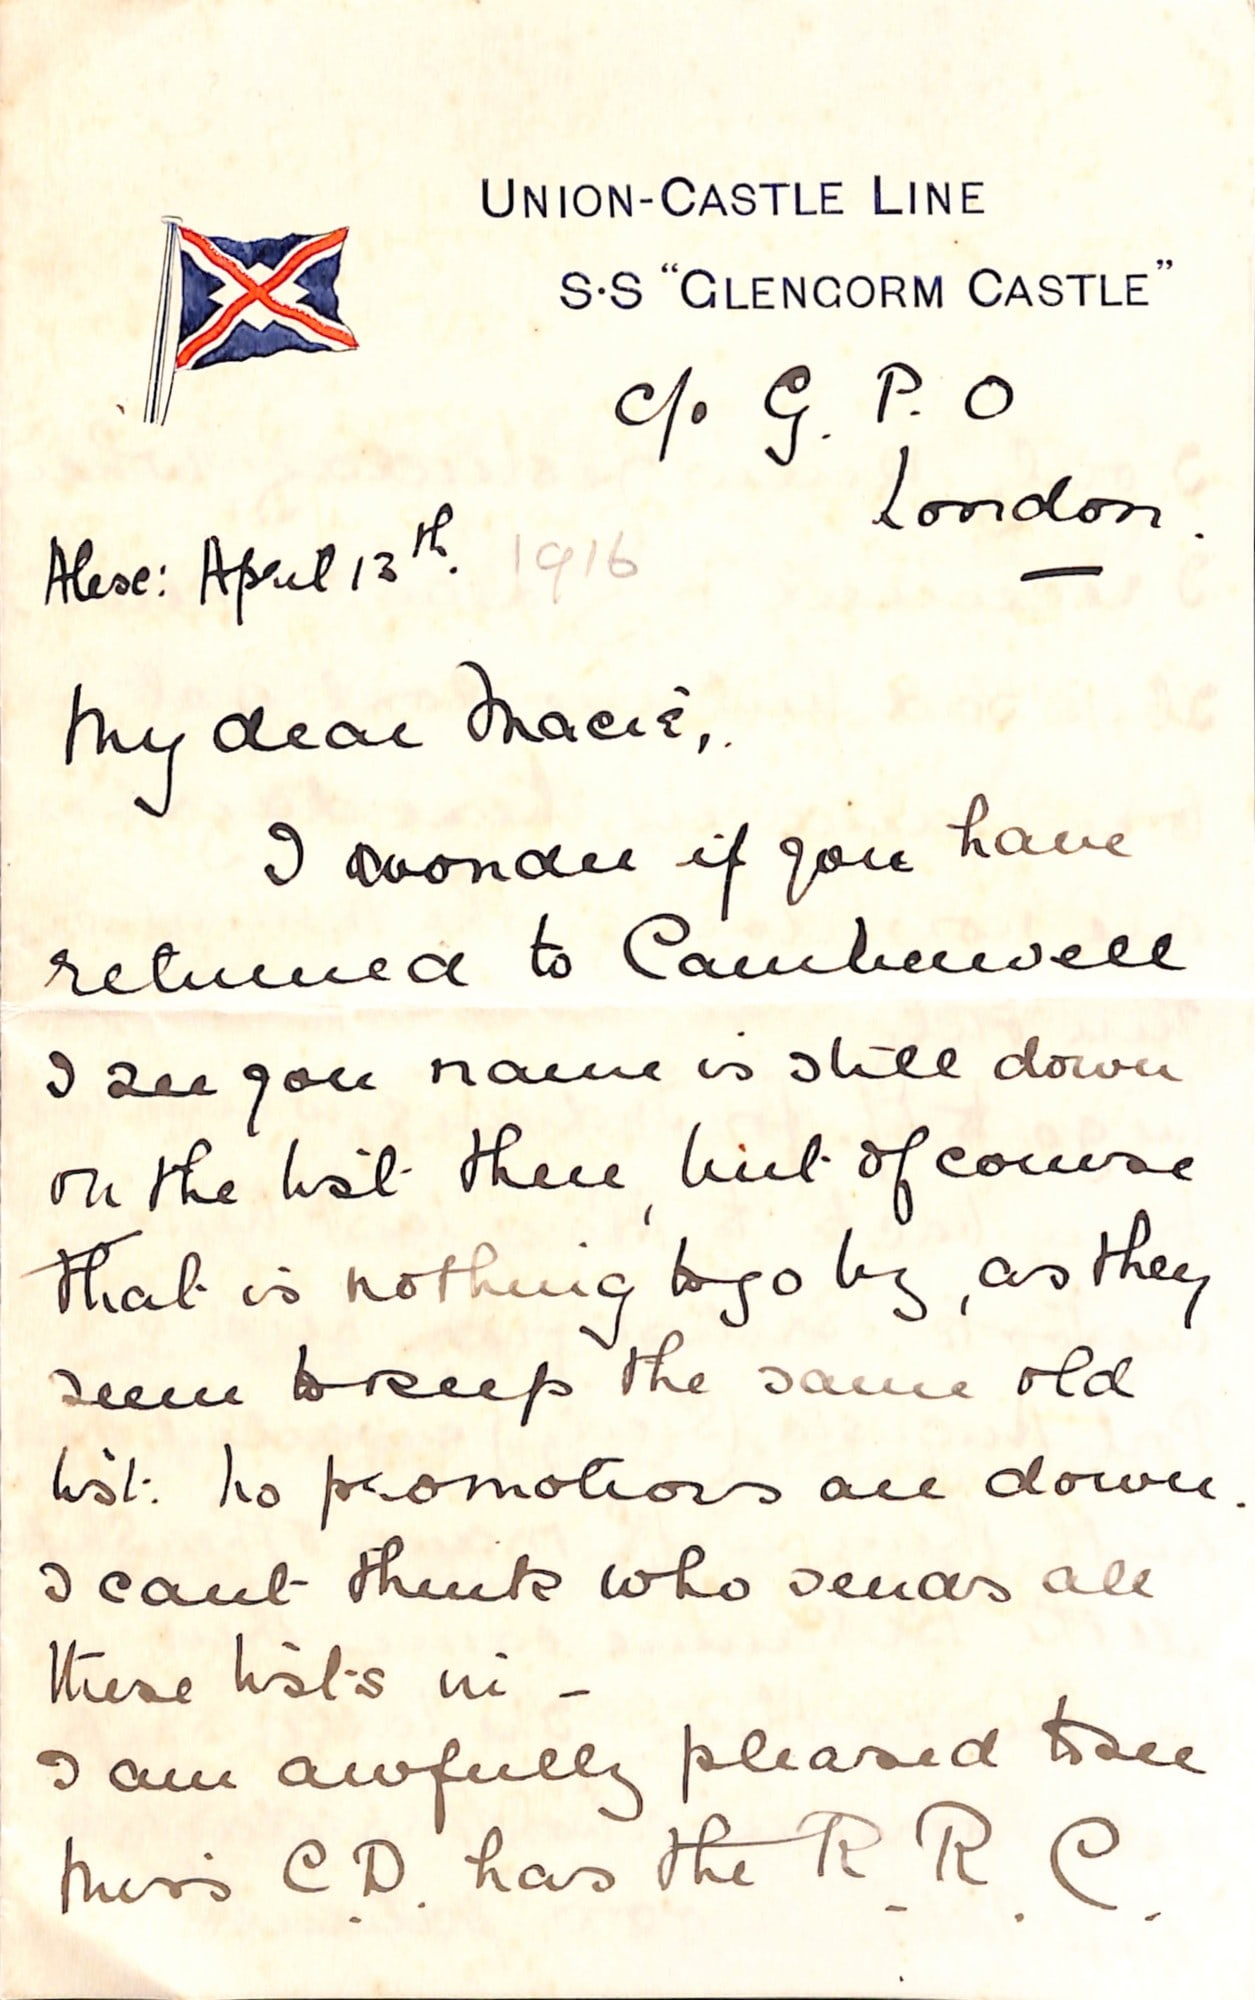 UNION-CASTLE LINE
S·S "GLENGORM CASTLE"
c/o G. P. O
London.
Alex: April 13th. 1916
My dear Macie,
I wonder if you have
returned to Camberwell
I see your name is still down
on the list there, but of course
that is nothing to go by, as they
seem to keep the same old
list. No promotions are down.
I cant think who sends all
these lists in -
I am awfully pleased to see
Miss C. D. has the R. R. C.